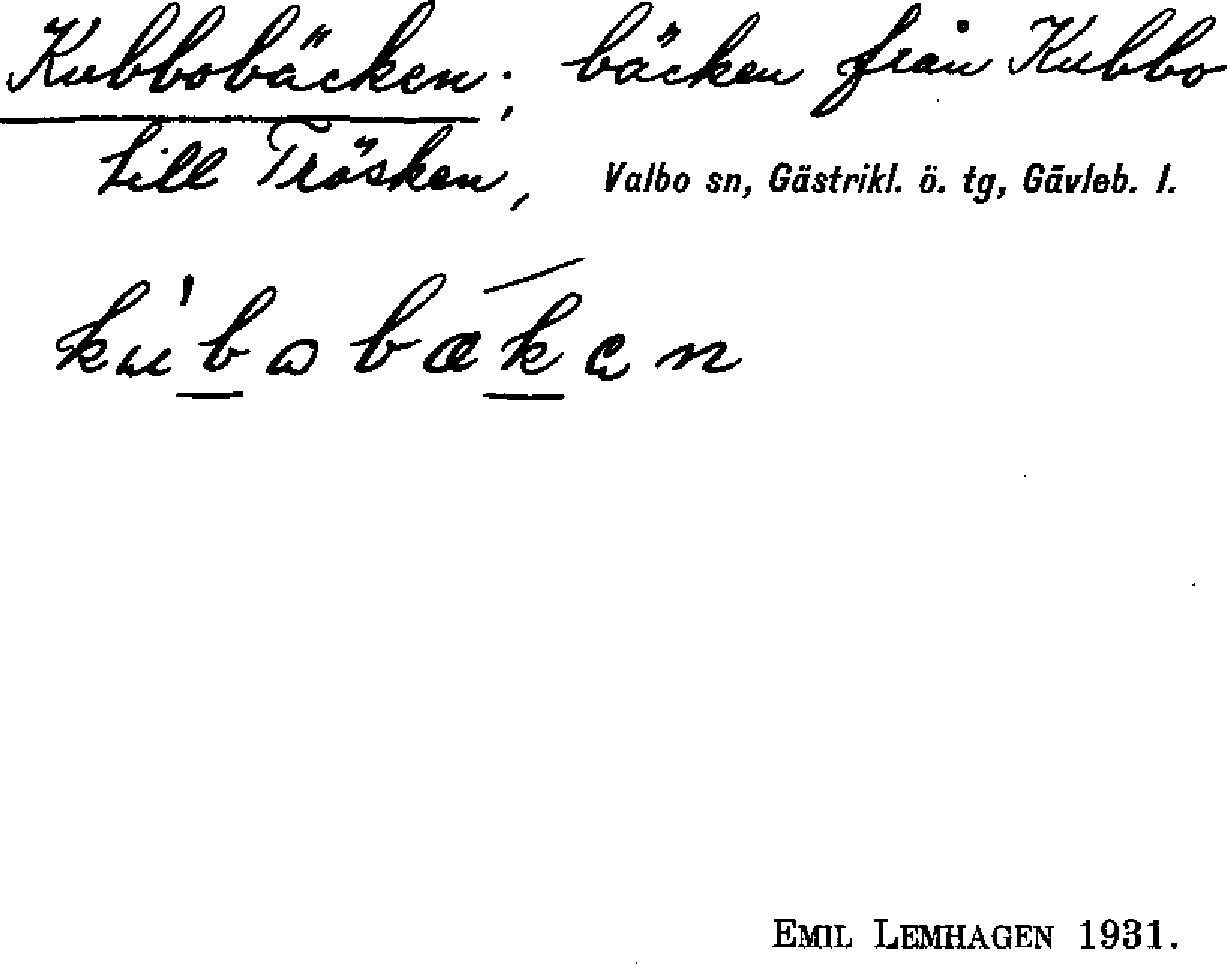 Kubbobäcken; bäcken från Kubbo
till Trösken, Valbo sn, Gästrikl. ö. tg, Gävleb. l.
kub̲obæk̲en
EMIL LEMHAGEN 1931.